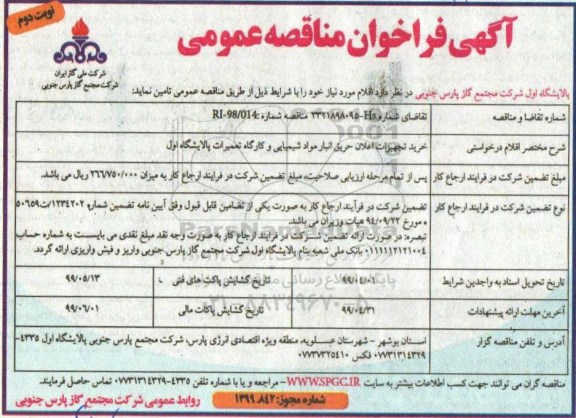 نوبت دوم
آگهی فراخوان مناقصه عمومی
شرکت ملی گاز ایران
شرکت مجتمع گاز پارس جنوبی
پالایشگاه اول شرکت مجتمع گاز پارس جنوبی در نظر دارد اقلام مورد نیاز خود را با شرایط ذیل از طریق مناقصه عمومی تامین نماید:
شماره تقاضا و مناقصه
تقاضای شماره ۳۳۱۱۸۹۸۰۹۵-Hs مناقصه شماره RI-98/014:
شرح مختصر اقلام درخواستی
خرید تجهیزات اعلان حریق انبار مواد شیمیایی و کارگاه تعمیرات پالایشگاه اول
مبلغ تضمین شرکت در فرایند ارجاع کار
پس از تمام مرحله ارزیابی صلاحیت، مبلغ تضمین شرکت در فرایند ارجاع کار به میزان ۲۶۶/۷۵۰/۰۰۰ ریال می باشد.
نوع تضمین شرکت در فرایند ارجاع کار
تضمین شرکت در فرآیند ارجاع کار به صورت یکی از تضامین قابل قبول وفق آیین نامه تضمین شماره ۱۲۳۴۲۰۲/ت۵۰۶۵۹ه
مورخ ۹۴/۰۹/۲۲ هیات وزیران می باشد.
تبصره: در صورت ارائه تضمین شرکت در فرایند ارجاع کار به صورت وجه نقد مبلغ نقدی می بایست به شماره حساب
۰۱۱۱۱۱۲۱۲۱۰۰۴ بانک ملی شعبه بنام پالایشگاه اول شرکت مجتمع گاز پارس جنوبی واریز و فیش واریزی ارائه گردد.
تاریخ تحویل اسناد به واجدین شرایط
۹۹/۰۴/۰۱
تاریخ گشایش پاکت های فنی
۹۹/۰۵/۱۳
آخرین مهلت ارائه پیشنهادات
۹۹/۰۴/۳۱
تاریخ گشایش پاکات مالی
۹۹/۰۶/۰۱
آدرس و تلفن مناقصه گزار
استان بوشهر - شهرستان عسلویه، منطقه ویژه اقتصادی انرژی پارس، شرکت مجتمع گاز پارس جنوبی پالایشگاه اول ۴۳۳۵-
۰۷۷۳۱۳۱۴۳۲۹ فکس ۰۷۷۳۷۳۲۵۴۱۰
مناقصه گران می توانند جهت کسب اطلاعات بیشتر به سایت WWW.SPGC.IR- مراجعه و یا با شماره تلفن ۴۳۳۵-۰۷۷۳۱۳۱۴۳۲۹ تماس حاصل فرمایند.
شماره مجوز: ۱۳۹۹.۸۴۲
روابط عمومی شرکت مجتمع گاز پارس جنوبی
ParsNamadData
پایگاه اطلاع رسانی
۰۲۱-۸۸۳۴۹۶۷۰-۵